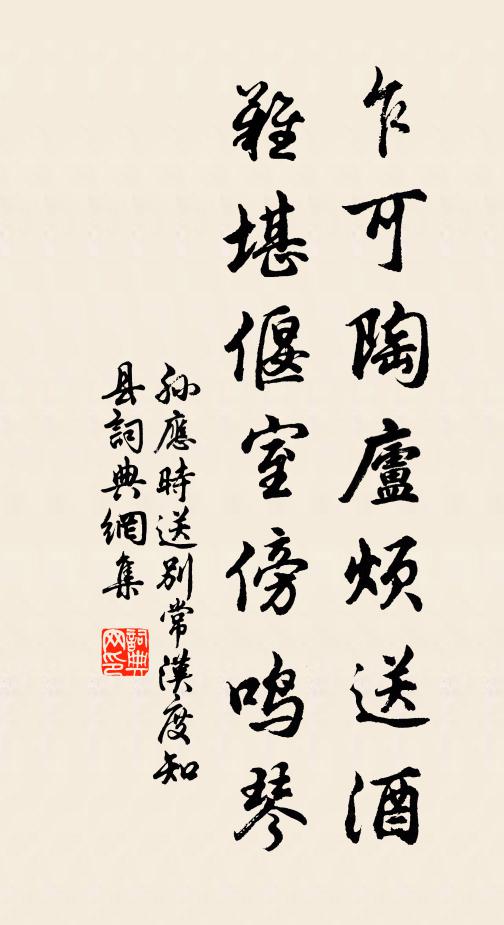 乍可陶廬煩送酒
難堪偃室傍鳴琴
孫應時送別常漢度知
县詞典網集
詞典网印